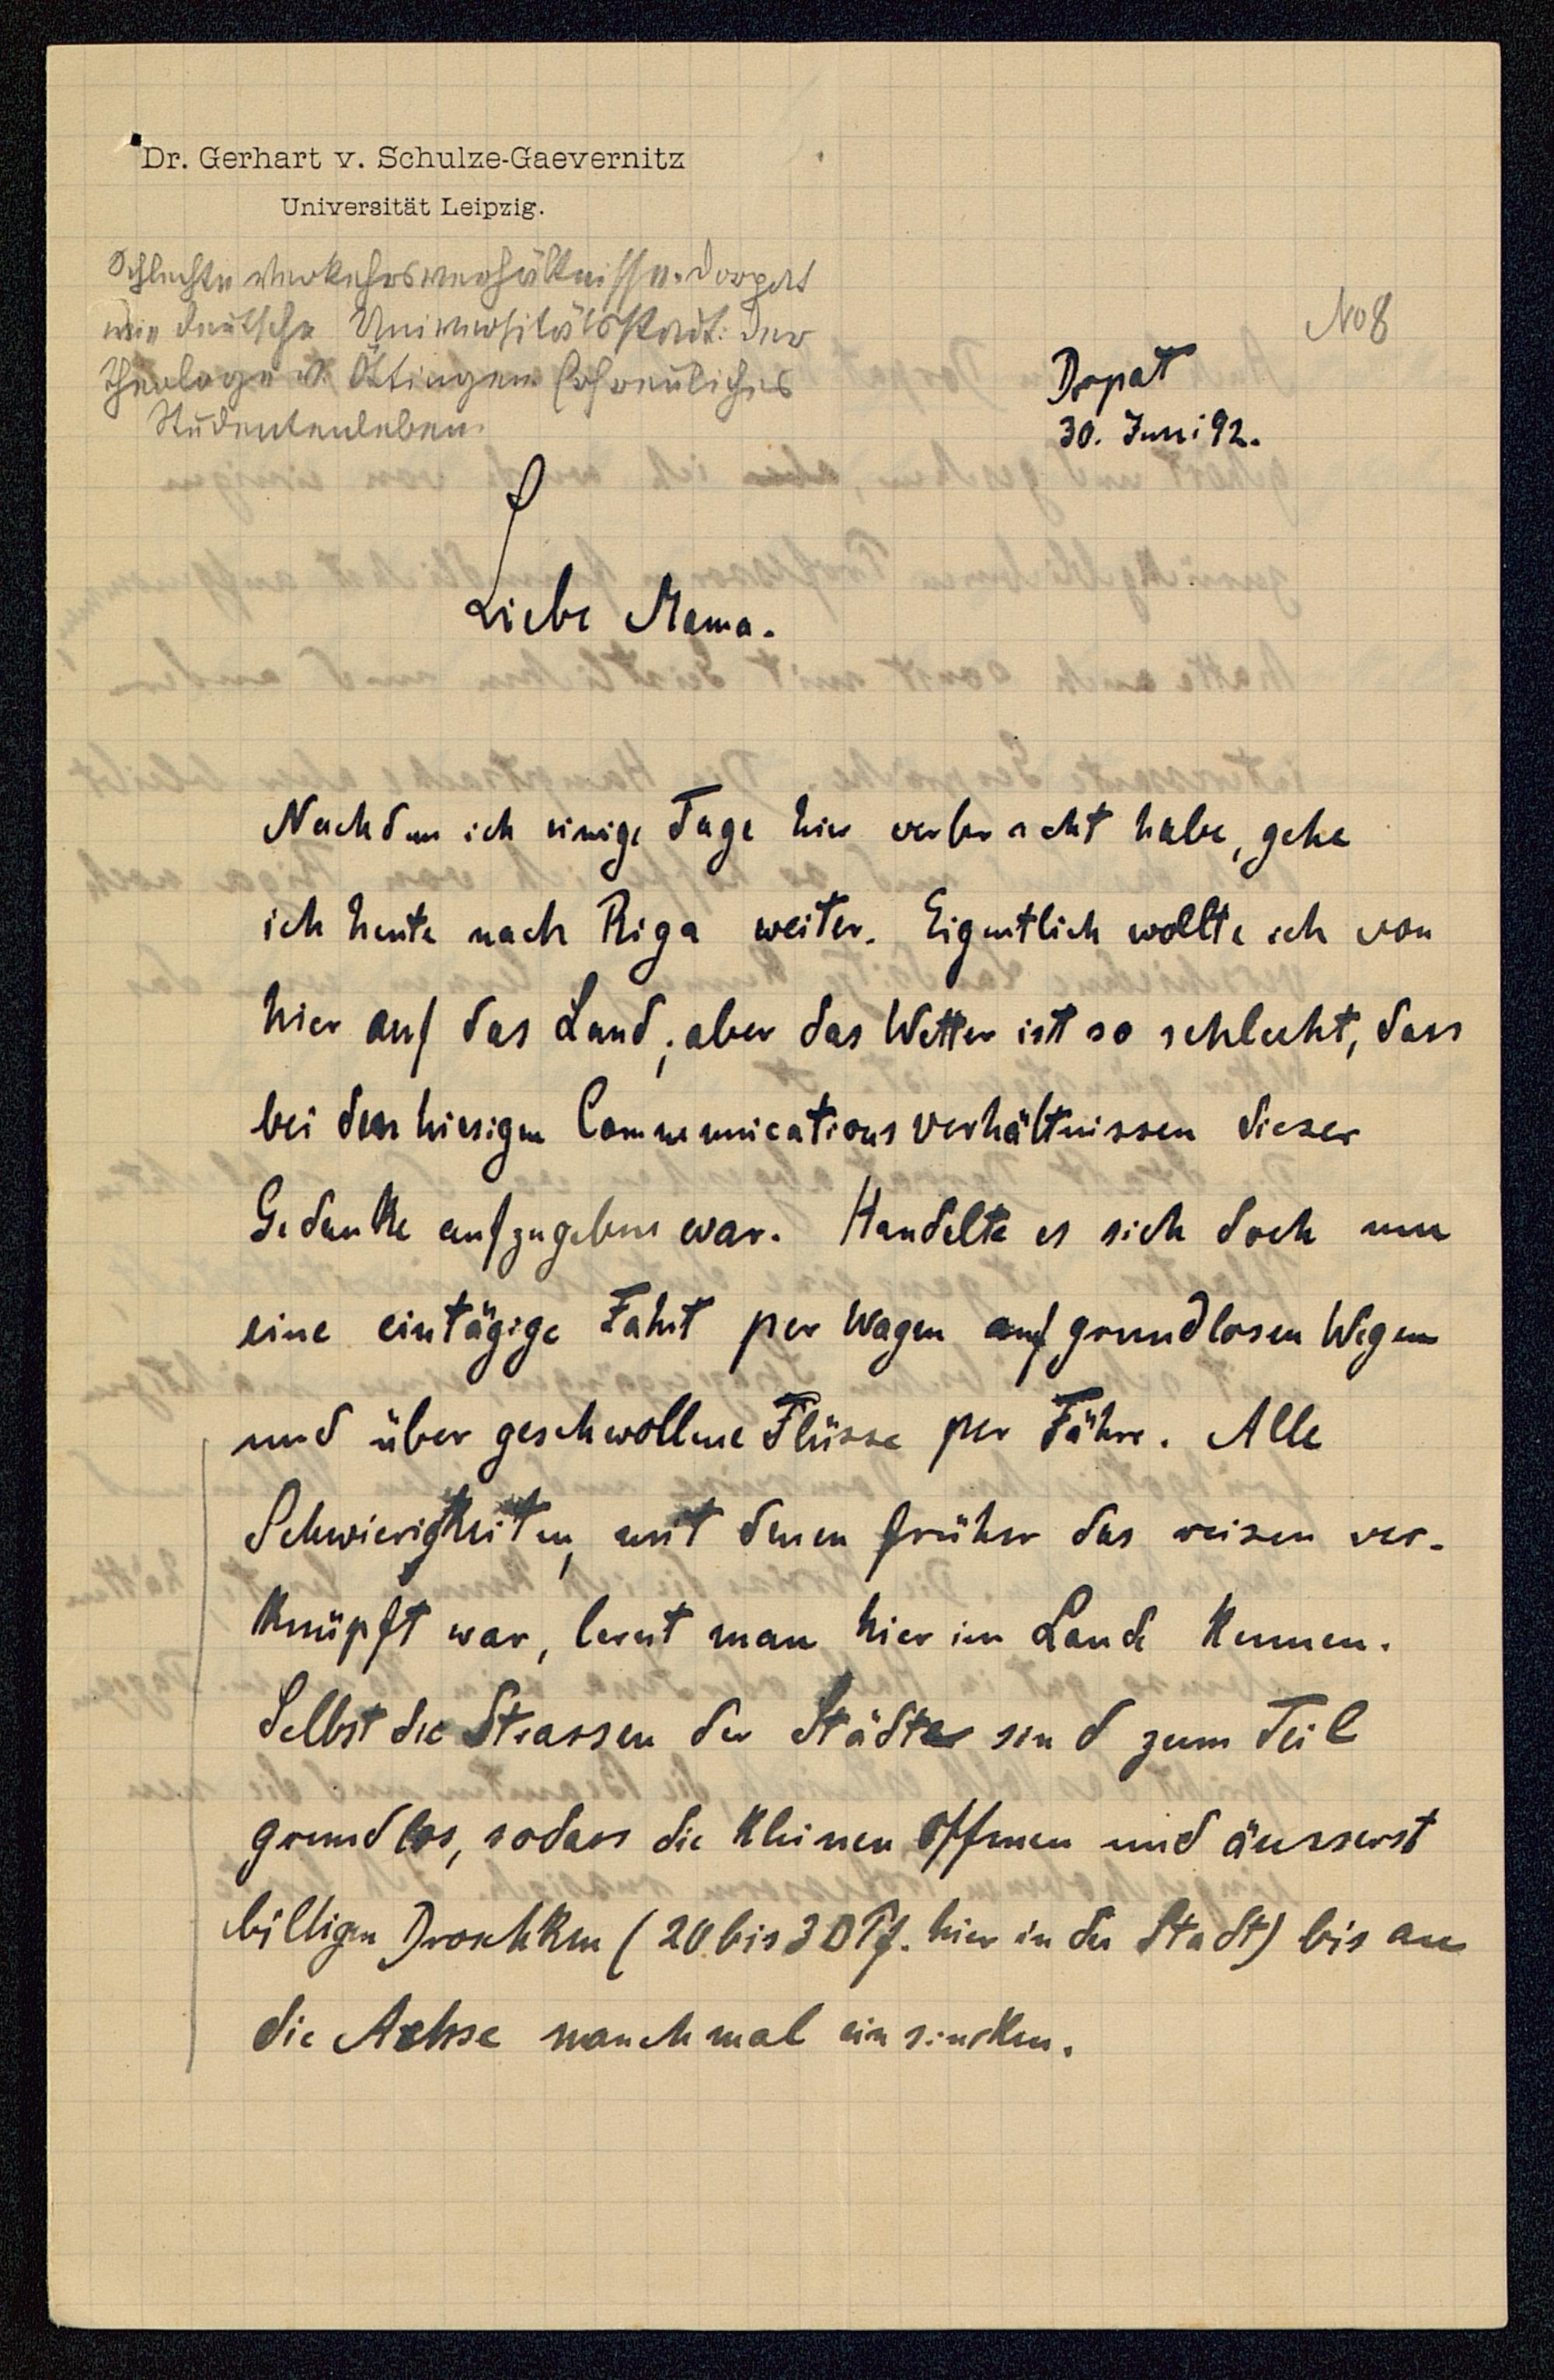 Dr. Gerhart v. Schulze-Gaevernitz
Universität Leipzig.
Schlechte Verkehrsverhältnisse. Dorpat
eine deutsche Universitätsstadt: Der
Theologe v. Öttingen. Erfreuliches
Studentenleben.
No 8
Dorpat
30. Juni 92.
Liebe Mama.
Nachdem ich einige Tage hier verbracht habe, gehe
ich heute nach Riga weiter. Eigentlich wollte ich von
hier auf das Land; aber das Wetter ist so schlecht, dass
bei den hiesigen Communicationsverhältnissen dieser
Gedanke aufzugeben war. Handelte es sich doch um
eine eintägige Fahrt per Wagen auf grundlosen Wegen
und über geschwollene Flüsse per Fähre. Alle
Schwierigkeiten, mit denen früher das reisen ver-
knüpft war, lernt man hier im Lande kennen.
Selbst die Strassen der Städte sind zum Teil
grundlos, sodass die kleinen offenen und äusserst
billigen Droschken (20 bis 30 Pf. hier in der Stadt) bis an
die Achse manchmal einsincken.